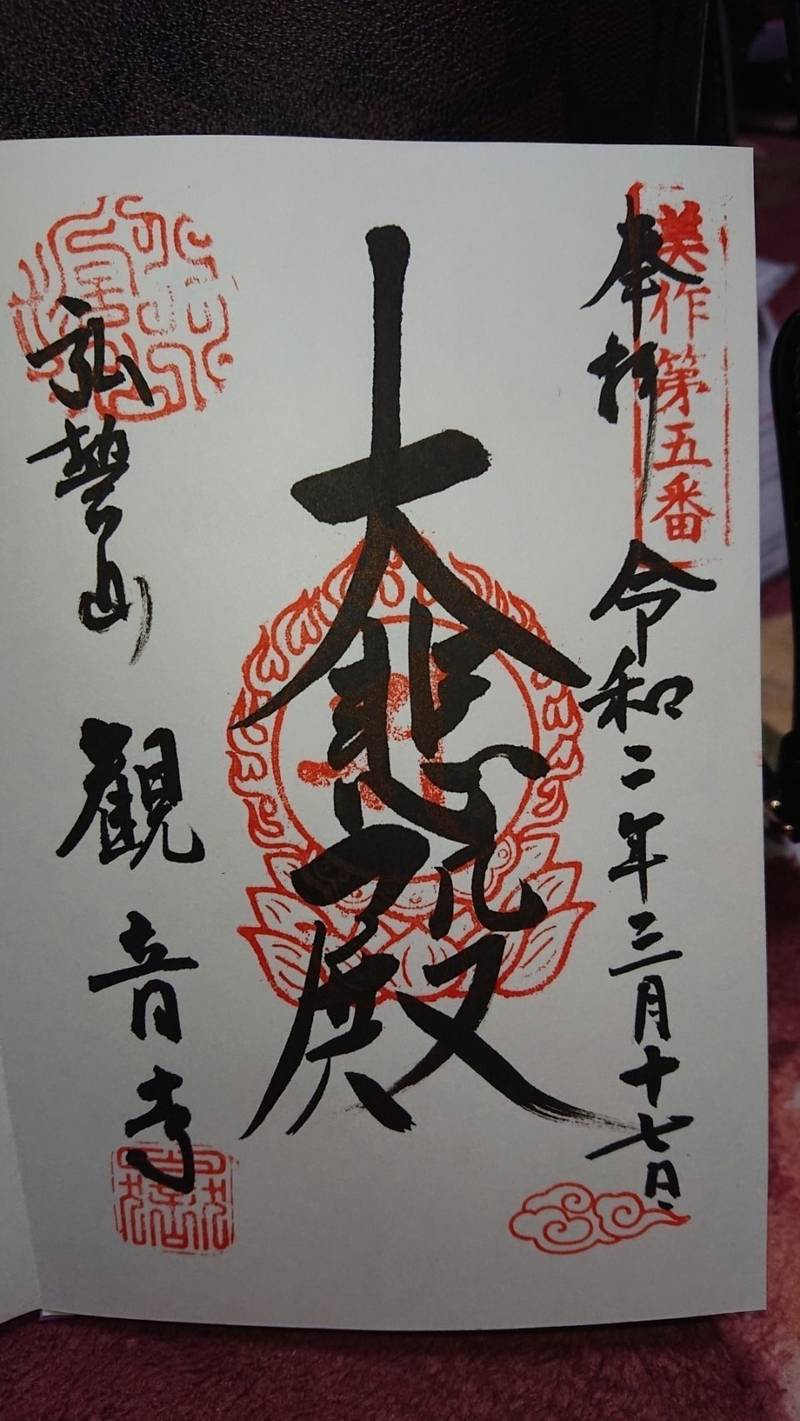 美作第五番
奉拝 令和二年三月十七日
大悲殿
弘誓山 観音寺